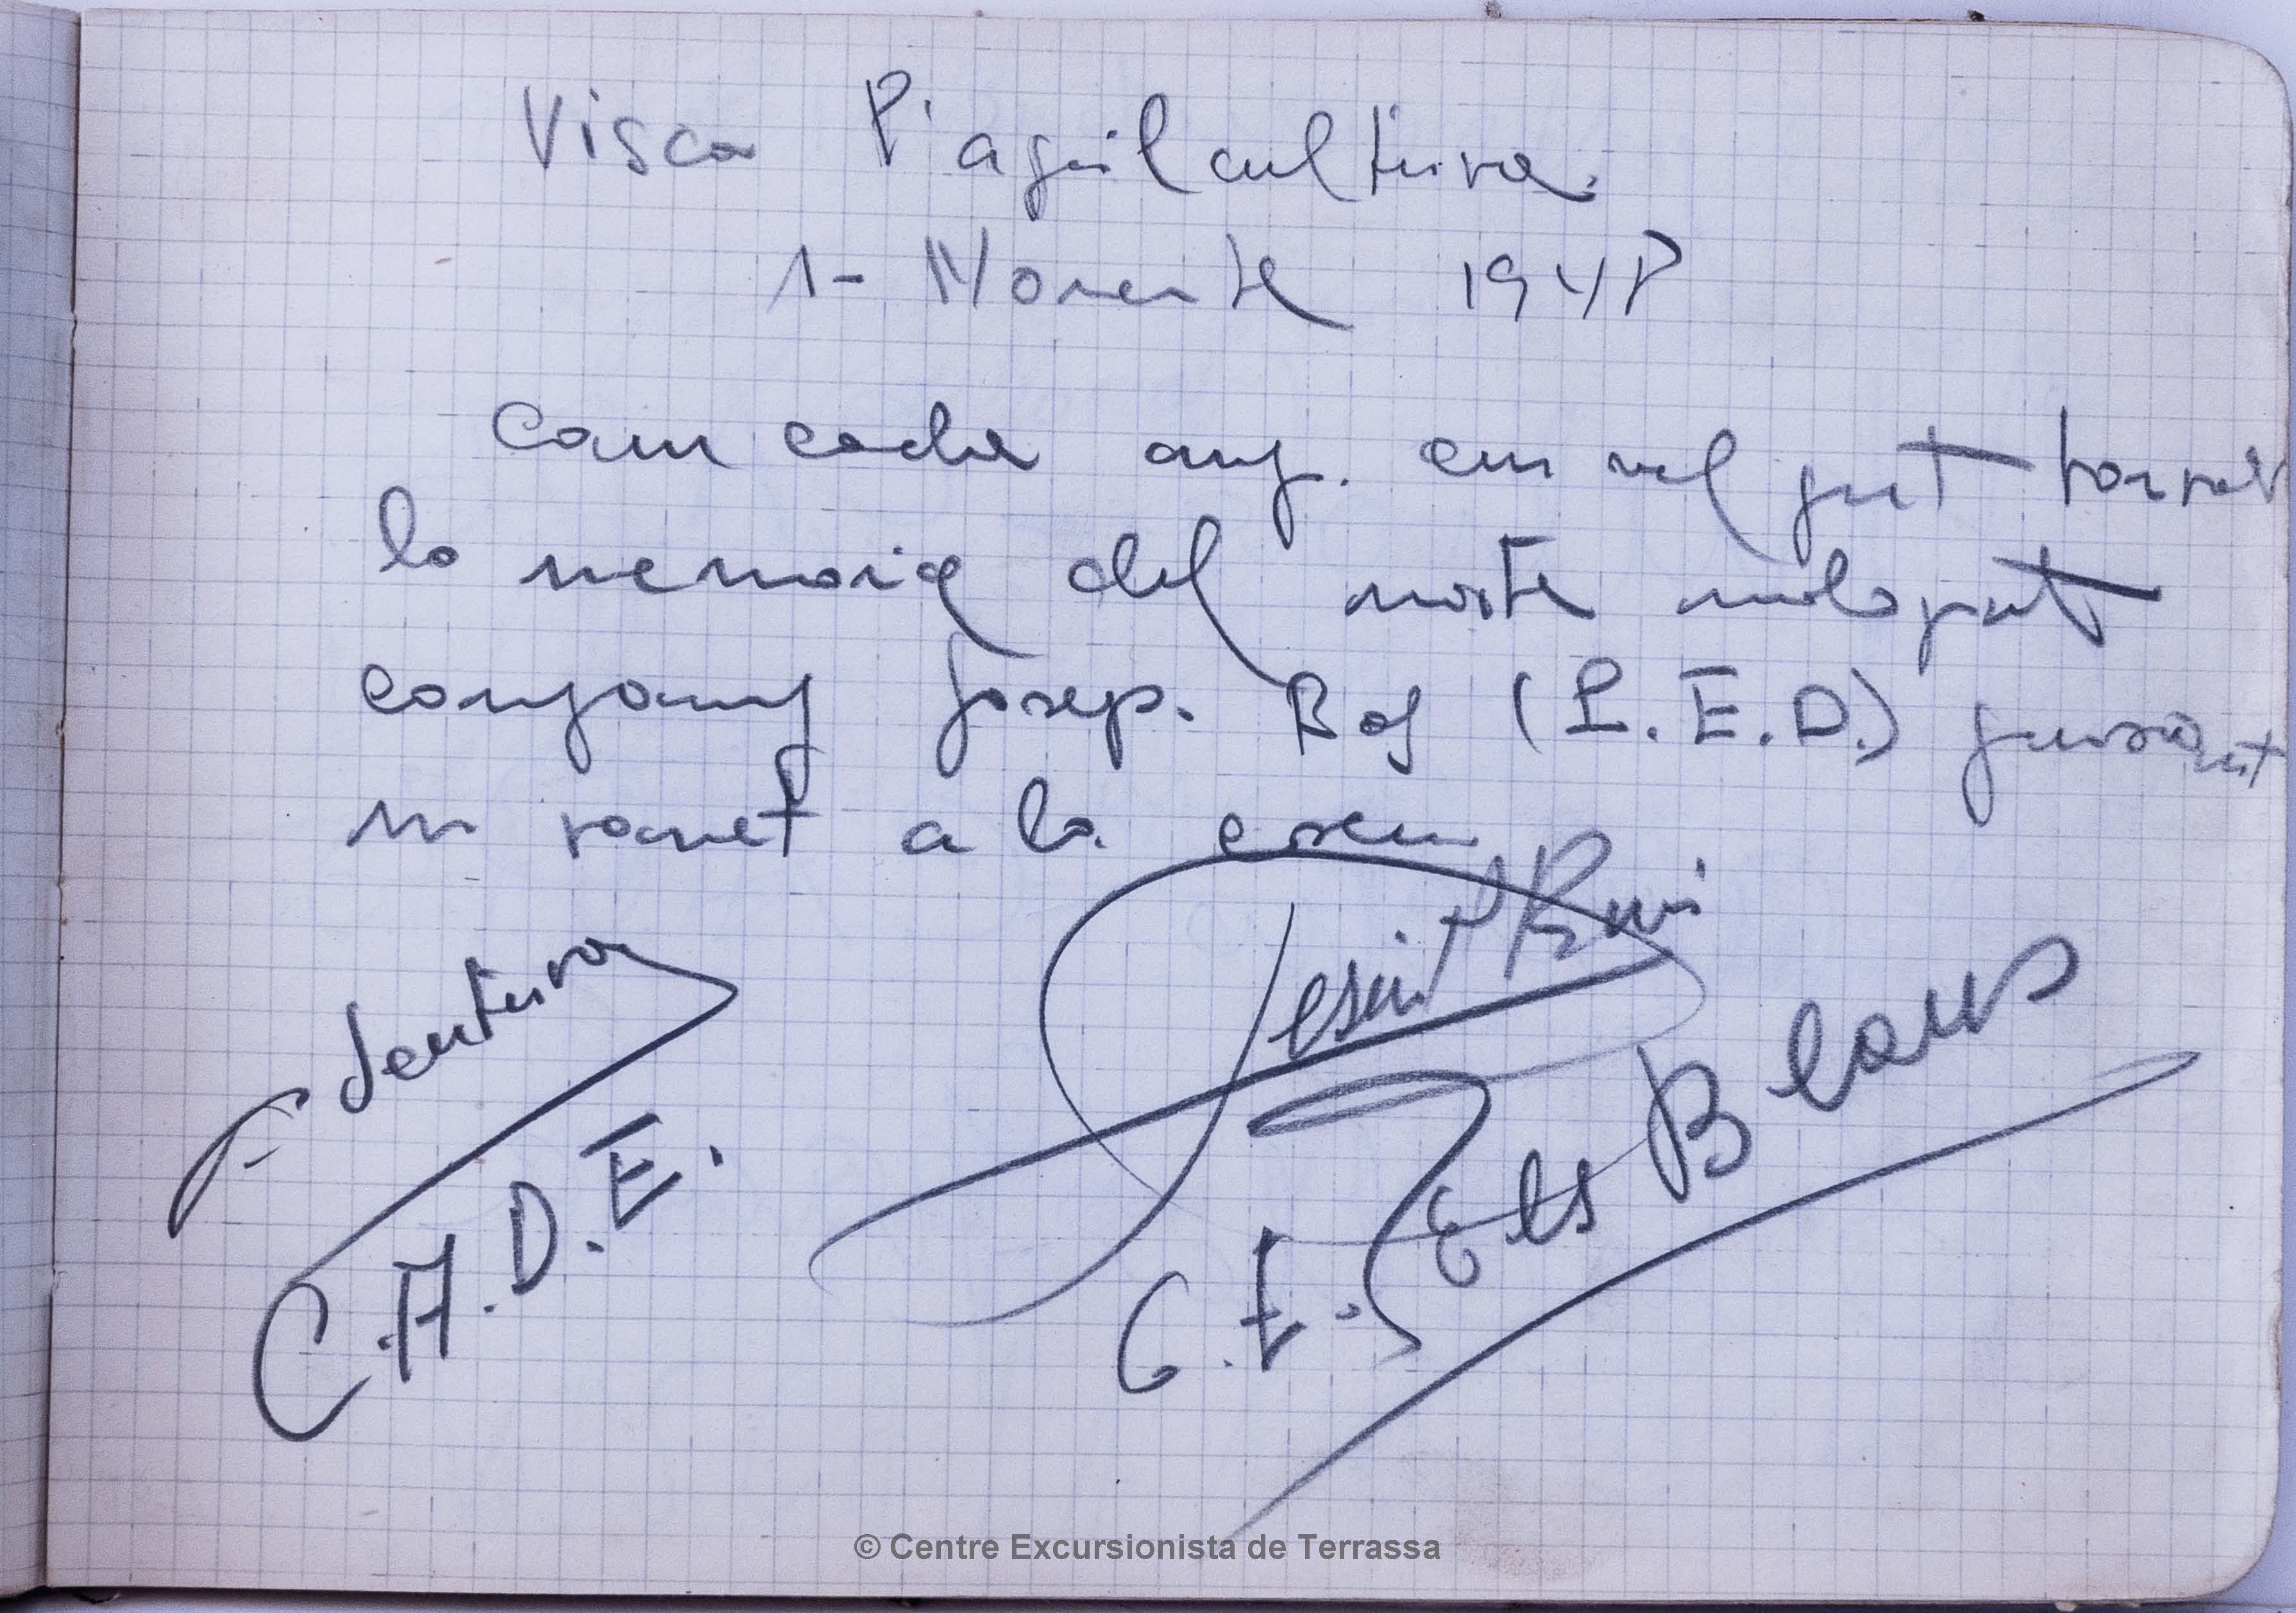 Visca l'agrilcultura.
1- Novembre 1948
Com cada any. em vol gut honrar
la memoria del nostre malogrut
company Josep. Boj (P.E.D.) posant
un ramet a la creu
F. Ventura
C.A.D.E.
Jesús Ruri
G.E. Els Blaus
© Centre Excursionista de Terrassa